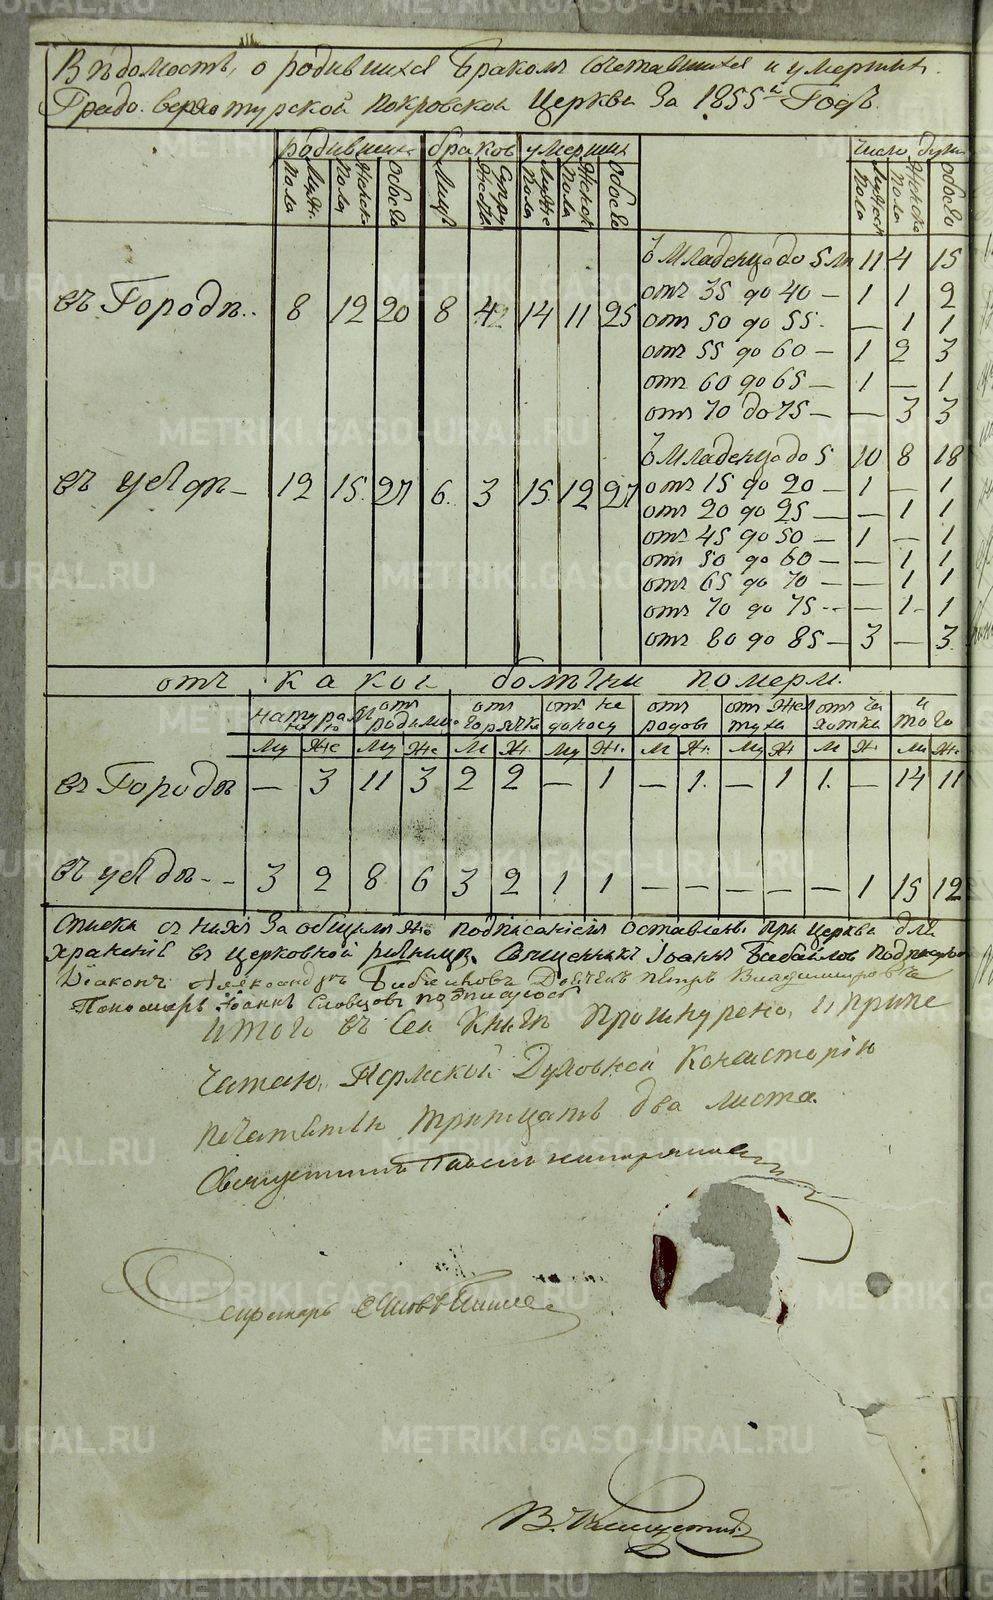 Вѣдомость, о родившихся Бракомъ сочетавшихся и умершихъ
Градо. верхотурской покровской Церкви За 1855й Годъ.
родивших браков умерших число душъ
Муж. пола Женск пола Обоего Лицъ Супружествъ Мужс пола Женск пола Обоего Мужск пола Женско пола Обоего
въ Городѣ.. 8 12 20 8 4 14 11 25
Младенцо до 5 лѣ 11 4 15
отъ 35 до 40 — 1 1 2
отъ 50 до 55. — 1 1
отъ 55 до 60 — 1 2 3
отъ 60 до 65 — 1 — 1
отъ 70 до 75 — — 3 3
въ уѣздѣ — 12 15. 27 6. 3 15. 12 27
Младенцо до 5 10 8 18
отъ 15 до 20 — 1 — 1
отъ 20 до 25 — — 1 1
отъ 45 до 50 — 1 — 1
отъ 50 до 60 — — 1 1
отъ 65 до 70 — — 1 1
отъ 70 до 75 -- — 1 1
отъ 80 до 85 — 3 — 3
отъ какой болѣзни померли.
натурально отъ родимца отъ горячки отъ поносу отъ родовъ отъ отъ чахотки итого
Му Же Му Же М Ж. Му Ж. М Ж. Му Ж М Ж. Му Же
въ Городѣ — 3 11 3 2 2 — 1 — 1. — 1 1. — 14 11
въ уѣздѣ - - 3 2 8 6 3 2 1 1 — — — — — 1 15 12
списки съ нихъ За общимъ подписаниемъ Оставлены При Церкви для
хранений въ церковной ризницѣ. Священникъ Іоаннъ подписуюсь
Діаконъ Александръ Бибиковъ Петръ Владимировъ
Пономарь Іоаннъ Словцовъ подписуюсь
Итого въ Сей Книгѣ Прошнурено, и припе
чатано, Пермской Духовной Консисторіи
печатьми Тритцать два листа.
Секретарь
METRIKI.GASO-URAL.RU